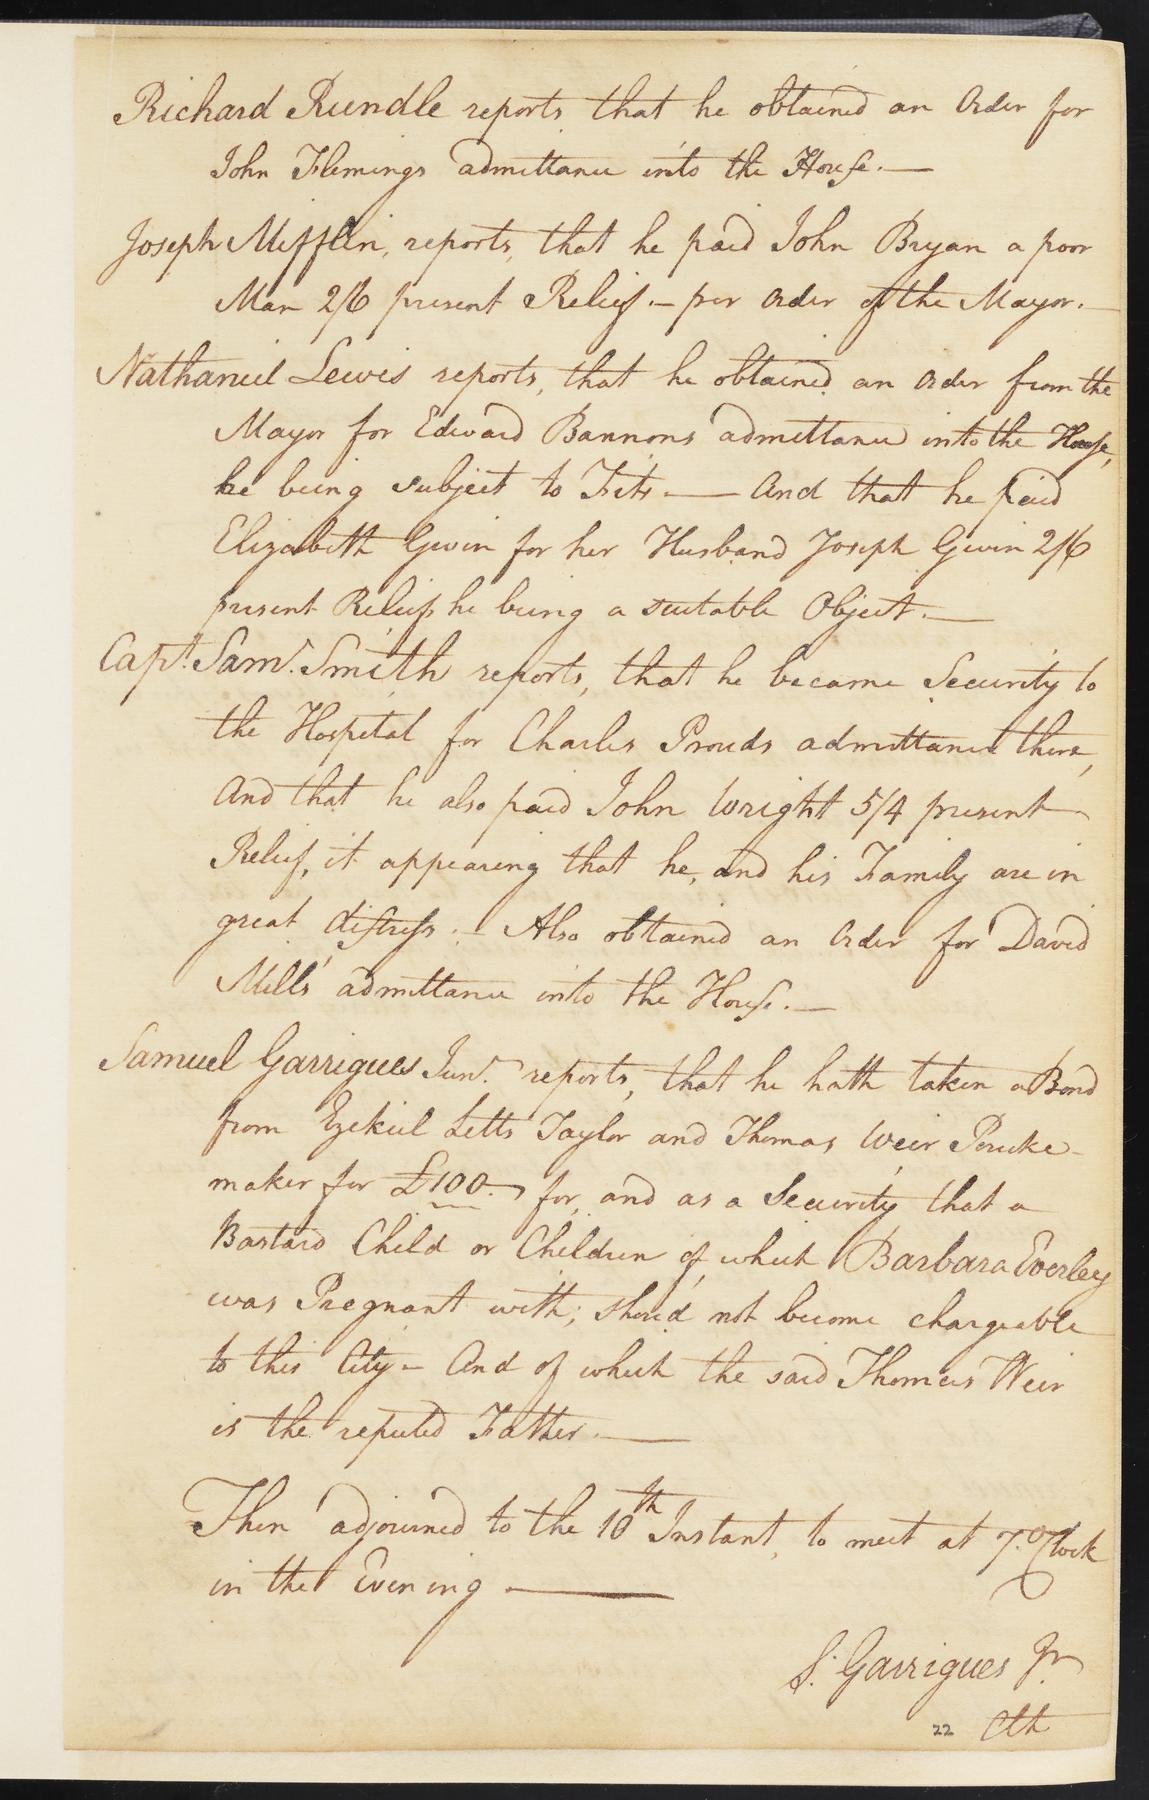 Richard Rundle reports that he obtained an Order for
John Flemings admittance into the House.—
Joseph Mifflin, reports, that he paid John Bryan a poor
Man 2/6 present Relief.— per order of the Mayor.—
Nathaniel Lewis reports, that he obtained an order from the
Mayor for Edward Bannons admittance into the House,
he being subject to Fits.— And that he paid
Elizabeth Gwin for her Husband Joseph Gwin 2/6
present Relief, he being a suitable Object.—
Capt. Saml. Smith reports, that he became Security to
the Hospital for Charles Prouds admittance there,
And that he also paid John Wright 5/4 present
Relief, it appearing that he, and his Family are in
great distress.— Also obtained an order for David
Mills' admittance into the House.—
Samuel Garrigues Junr. reports, that he hath taken a Bond
from Ezekiel Letts Taylor and Thomas Weir Peruke-
maker for £100.— for, and as a Security that a
Bastard Child or Children of which Barbara Everley
was Pregnant with; shou'd not become chargeable
to this City— And of which the said Thomas Weir
is the reputed Father.—
Then adjourned to the 10th Instant, to meet at 7.O'Clock
in the Evening —
S. Garrigues Jr.
22 Clk